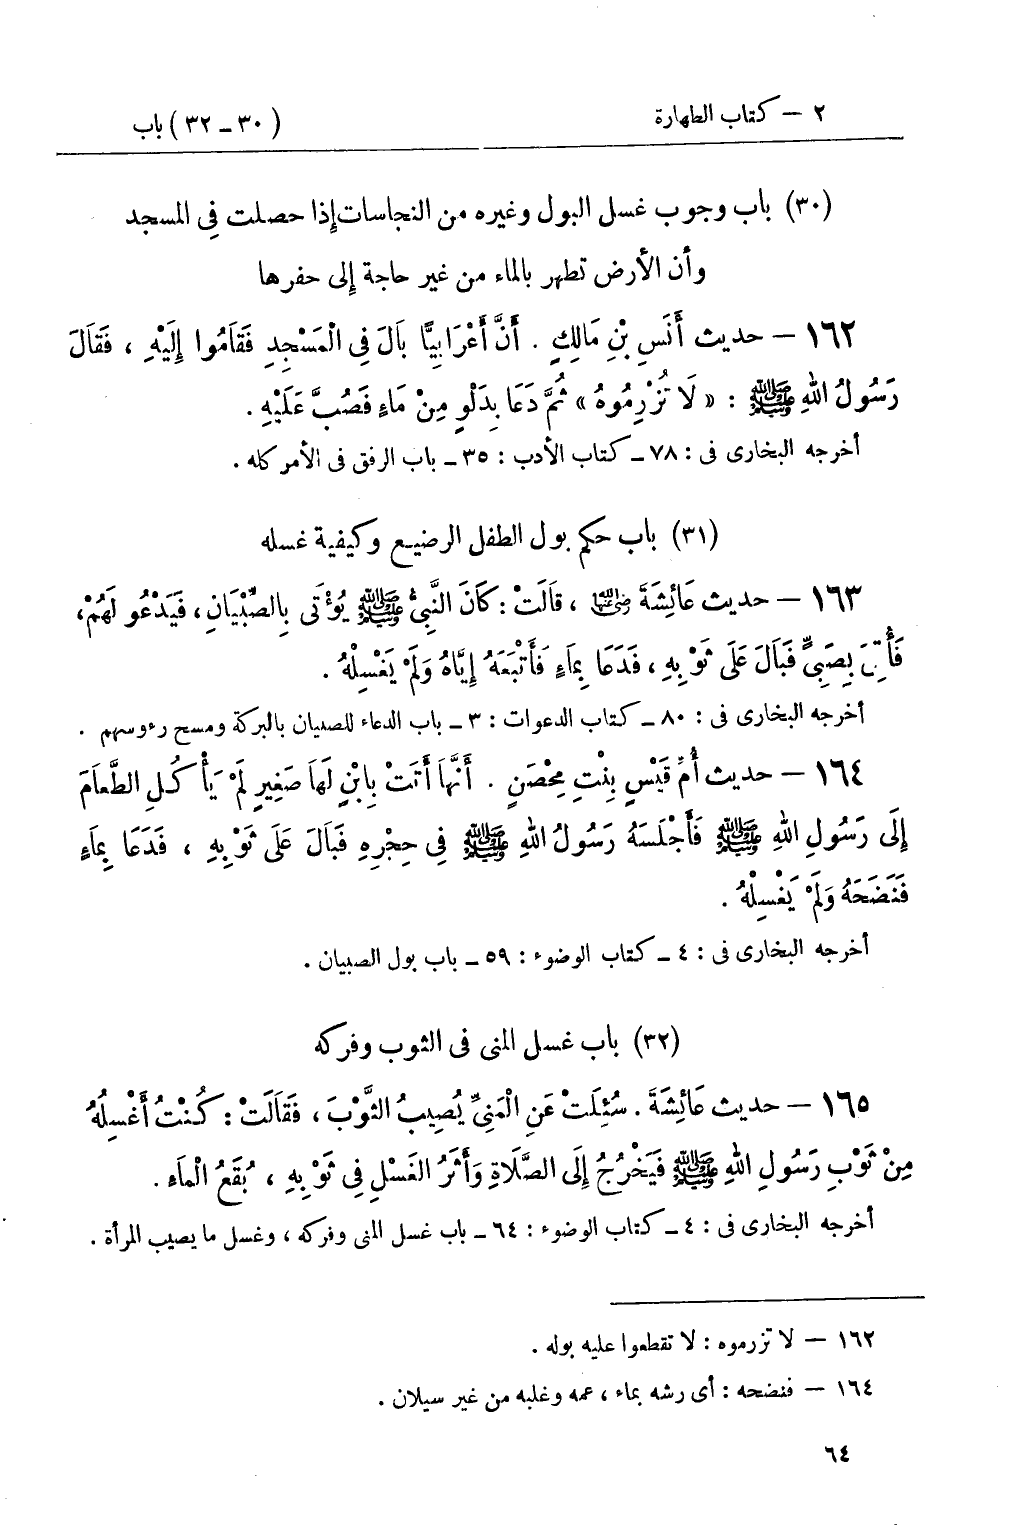 ٢ — كتاب الطهارة (٣٠ – ٣٢) باب
(٣٠) باب وجوب غسل البول وغيره من النجاسات إذا حصلت فى المسجد
وأن الأرض تطهر بالماء من غير حاجة إلى حفرها
١٦٢ — حديث أَنَسِ بْنِ مَالِكٍ . أَنَّ أَعْرَابِيًّا بَالَ فِى الْمَسْجِدِ فَقَامُوا إِلَيْهِ ، فَقَالَ
رَسُولُ اللهِ ﷺ : « لَا تُزْرِمُوهُ » ثُمَّ دَعَا بِدَلْوٍ مِنْ مَاءٍ فَصُبَّ عَلَيْهِ .
أخرجه البخارى فى : ٧٨ – كتاب الأدب : ٣٥ – باب الرفق فى الأمر كله .
(٣١) باب حكم بول الطفل الرضيع وكيفية غسله
١٦٣ — حديث عَائِشَةَ رضي الله عنها ، قَالَتْ : كَانَ النَّبِىُّ ﷺ يُؤْتَى بِالصِّبْيَانِ ، فَيَدْعُو لَهُمْ ،
فَأُتِىَ بِصَبِىٍّ فَبَالَ عَلَى ثَوْبِهِ ، فَدَعَا بِمَاءٍ فَأَتْبَعَهُ إِيَّاهُ وَلَمْ يَغْسِلْهُ .
أخرجه البخارى فى : ٨٠ – كتاب الدعوات : ٣ – باب الدعاء للصبيان بالبركة ومسح رءوسهم .
١٦٤ — حديث أُمِّ قَيْسٍ بِنْتِ مِحْصَنٍ . أَنَّهَا أَتَتْ بِابْنٍ لَهَا صَغِيرٍ لَمْ يَأْكُلِ الطَّعَامَ
إِلَى رَسُولِ اللهِ ﷺ فَأَجْلَسَهُ رَسُولُ اللهِ ﷺ فِى حِجْرِهِ فَبَالَ عَلَى ثَوْبِهِ ، فَدَعَا بِمَاءٍ
فَنَضَحَهُ وَلَمْ يَغْسِلْهُ .
أخرجه البخارى فى : ٤ – كتاب الوضوء : ٥٩ – باب بول الصبيان .
(٣٢) باب غسل المنى فى الثوب وفركه
١٦٥ — حديث عَائِشَةَ . سُئِلَتْ عَنِ الْمَنِىِّ يُصِيبُ الثَّوْبَ ، فَقَالَتْ : كُنْتُ أَغْسِلُهُ
مِنْ ثَوْبِ رَسُولِ اللهِ ﷺ فَيَخْرُجُ إِلَى الصَّلَاةِ وَأَثَرُ الغَسْلِ فِى ثَوْبِهِ ، بُقَعُ الْمَاءِ .
أخرجه البخارى فى : ٤ – كتاب الوضوء : ٦٤ – باب غسل المنى وفركه ، وغسل ما يصيب المرأة .
١٦٢ — لا تزرموه : لا تقطعوا عليه بوله .
١٦٤ — فنضحه : أى رشه بماء ، عمه وغلبه من غير سيلان .
٦٤